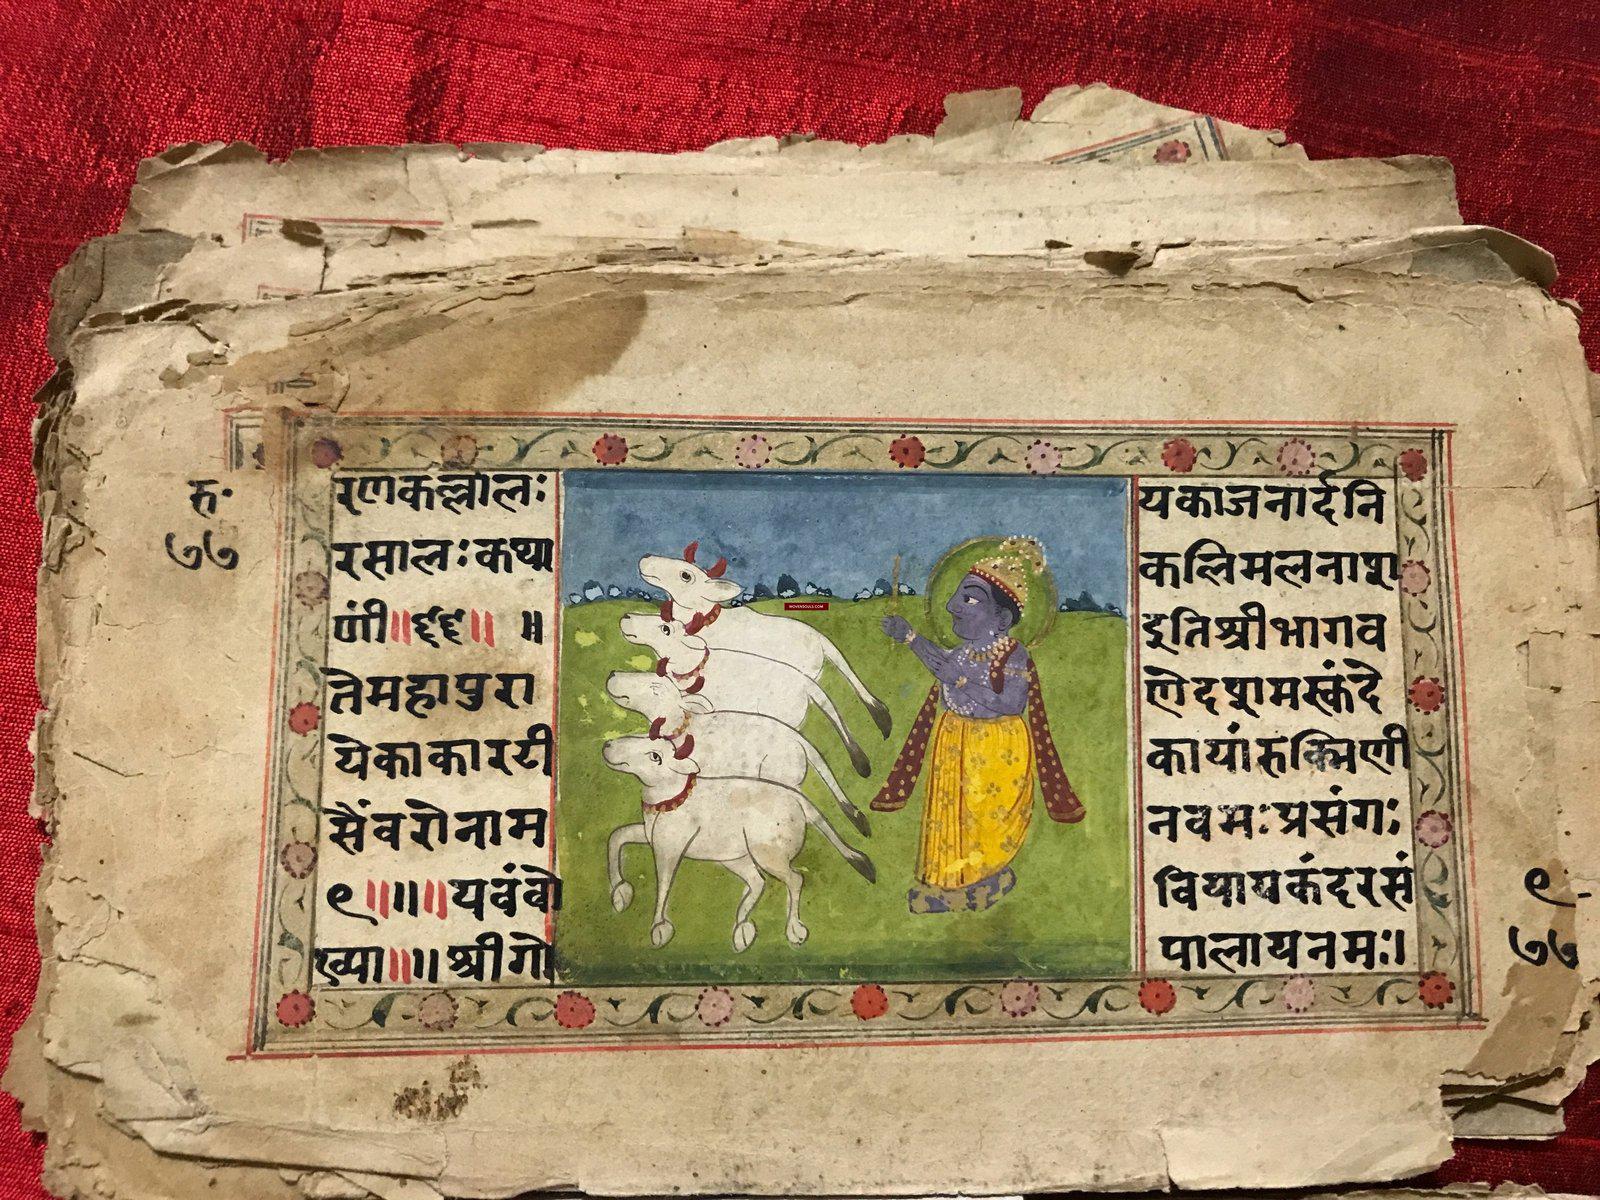 रु॰
७७
रणकल्लोलः
यकाजनार्दनि
रसालःकथा
कलिमलनाश
णी॥६६॥ ॥
इतिश्रीभागव
तेमहापुरा
णेदशमस्कंदे
येकाकारटी
कायांरुक्मिणी
सैंवरोनाम
नवमःप्रसंगः
९॥॥॥यवंवो
वियायकंदरसं
ख्या॥॥श्रीगो
पालायनमः।
९
७७
WOVENSOULS.COM